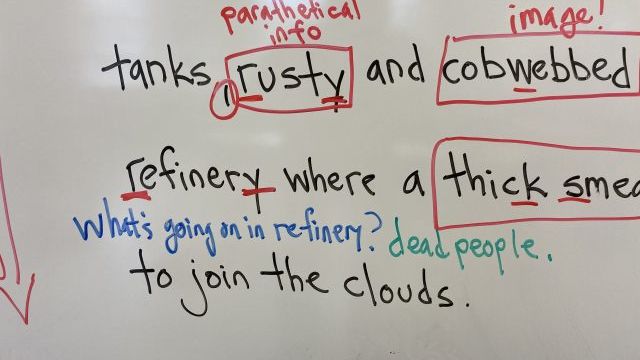 parathetical image!
info
tanks, rusty and cobwebbed
refinery where a thick smea
what's going on in refinery? dead people.
to join the clouds.